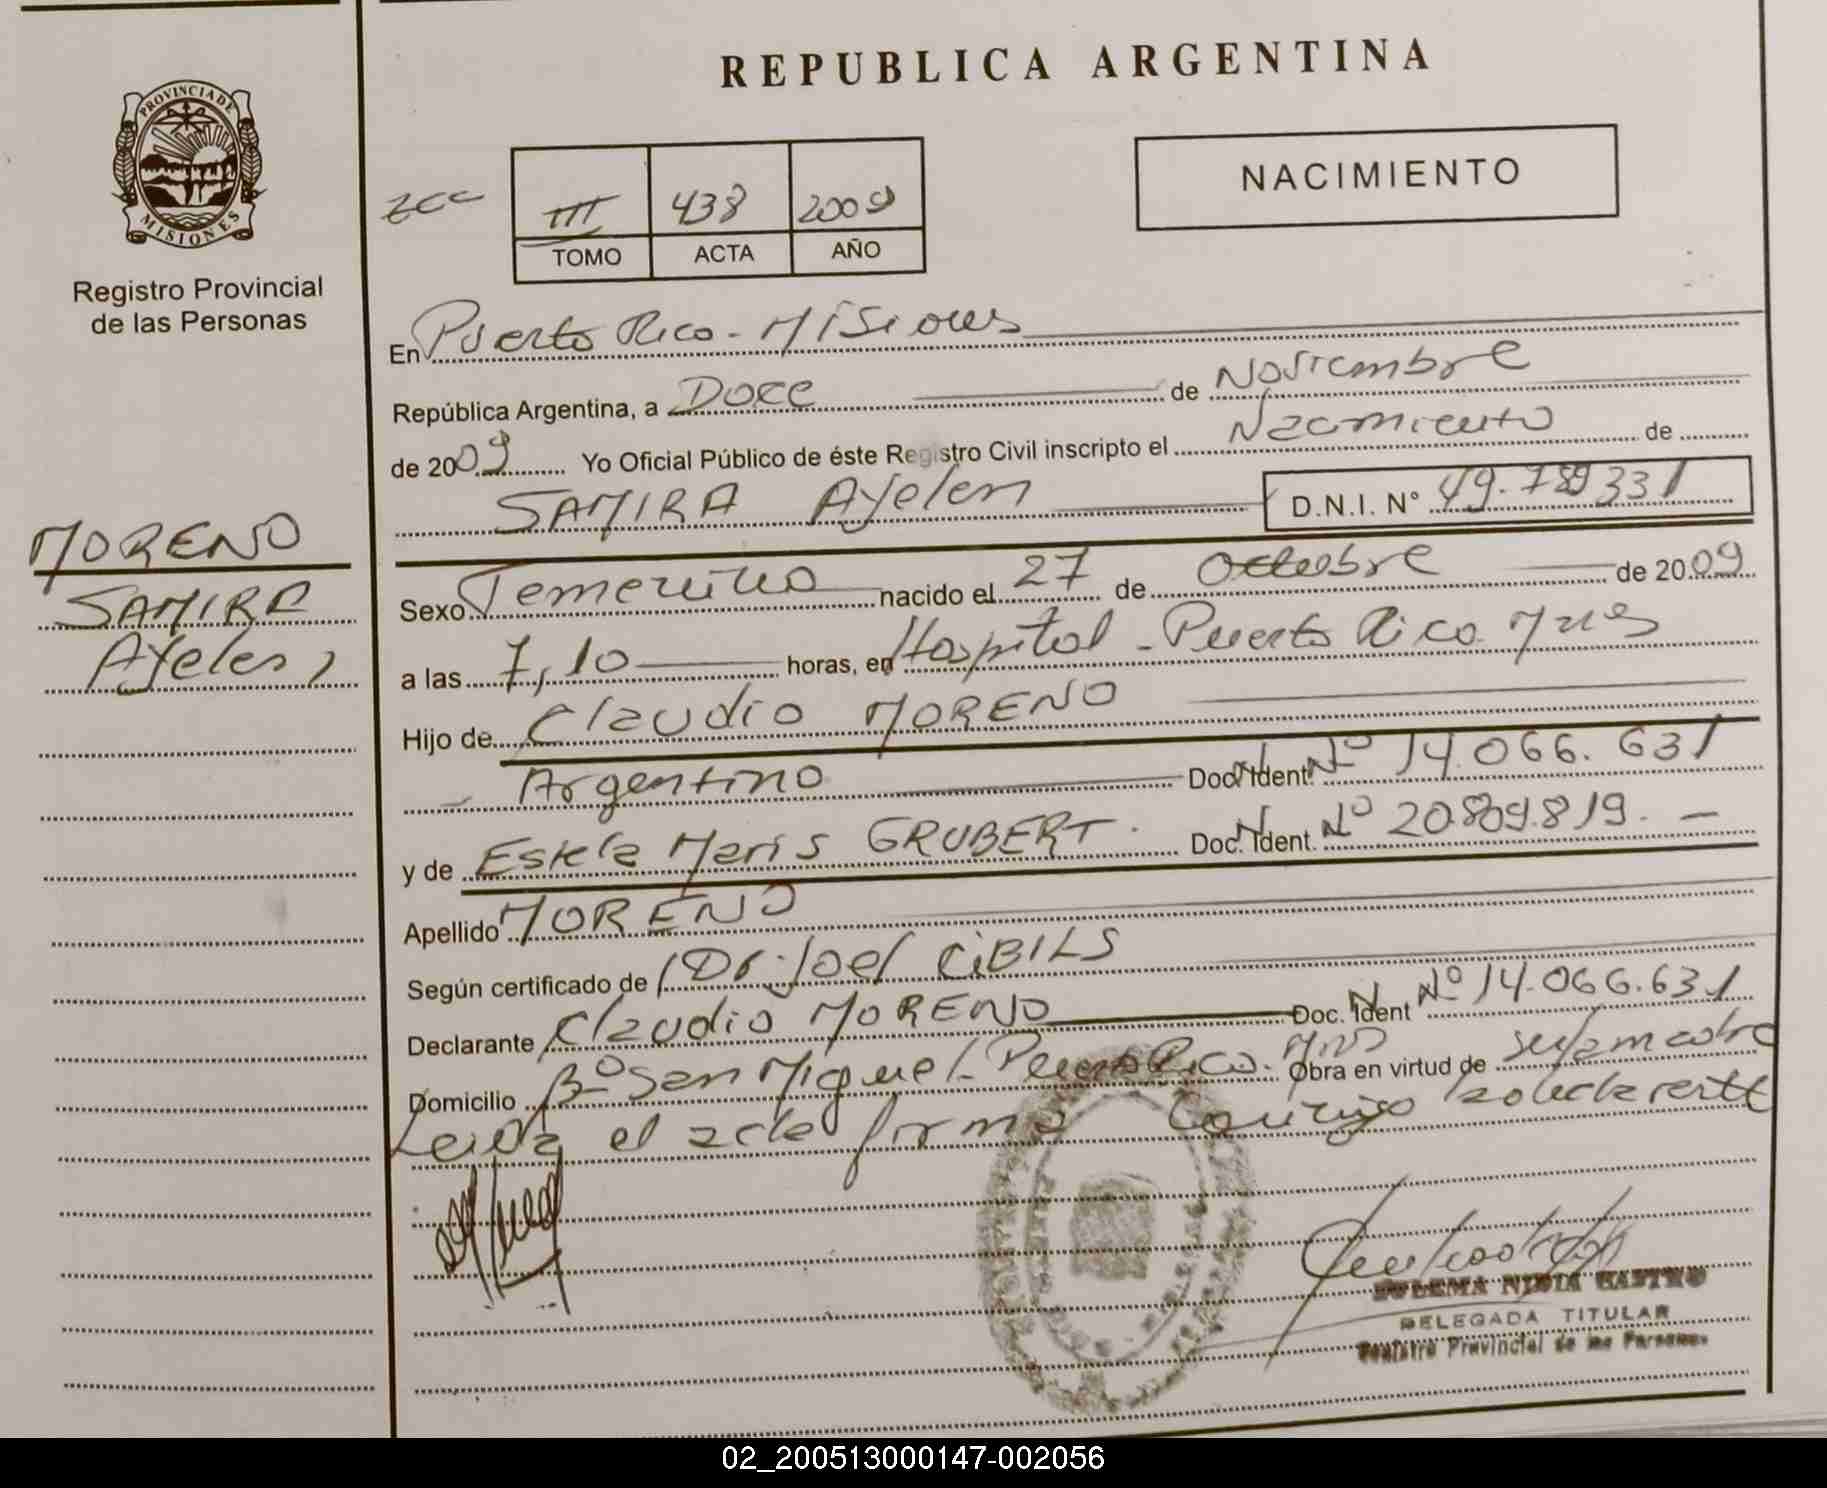 REPUBLICA ARGENTINA
PROVINCIA DE
MISIONES
Registro Provincial
de las Personas
NACIMIENTO
III 438 2009
TOMO ACTA AÑO
En Puerto Rico - Misiones
República Argentina, a Doce de Noviembre
de 2009 Yo Oficial Público de éste Registro Civil inscripto el Nacimiento de
SAMIRA Ayelen D.N.I. N° 49.789331
MORENO
SAMIRA
Ayelen
Sexo Femenino nacido el 27 de Octubre de 2009
a las 7,10 horas, en Hospital - Puerto Rico Mnes
Hijo de Claudio MORENO
Argentino Doc. Ident. N° 14.066.631
y de Estela Maris GRUBERT. Doc. Ident. N° 20.809.819. -
Apellido MORENO
Según certificado de Dr. Joel CiBILS
Declarante Claudio MORENO Doc. Ident N° 14.066.631
Domicilio B° San Miguel - Puerto Rico. Mnes Obra en virtud de
Leida el acta firma conmigo
NIDIA CASTRO
DELEGADA TITULAR
Registro Provincial de las Personas
02_200513000147-002056